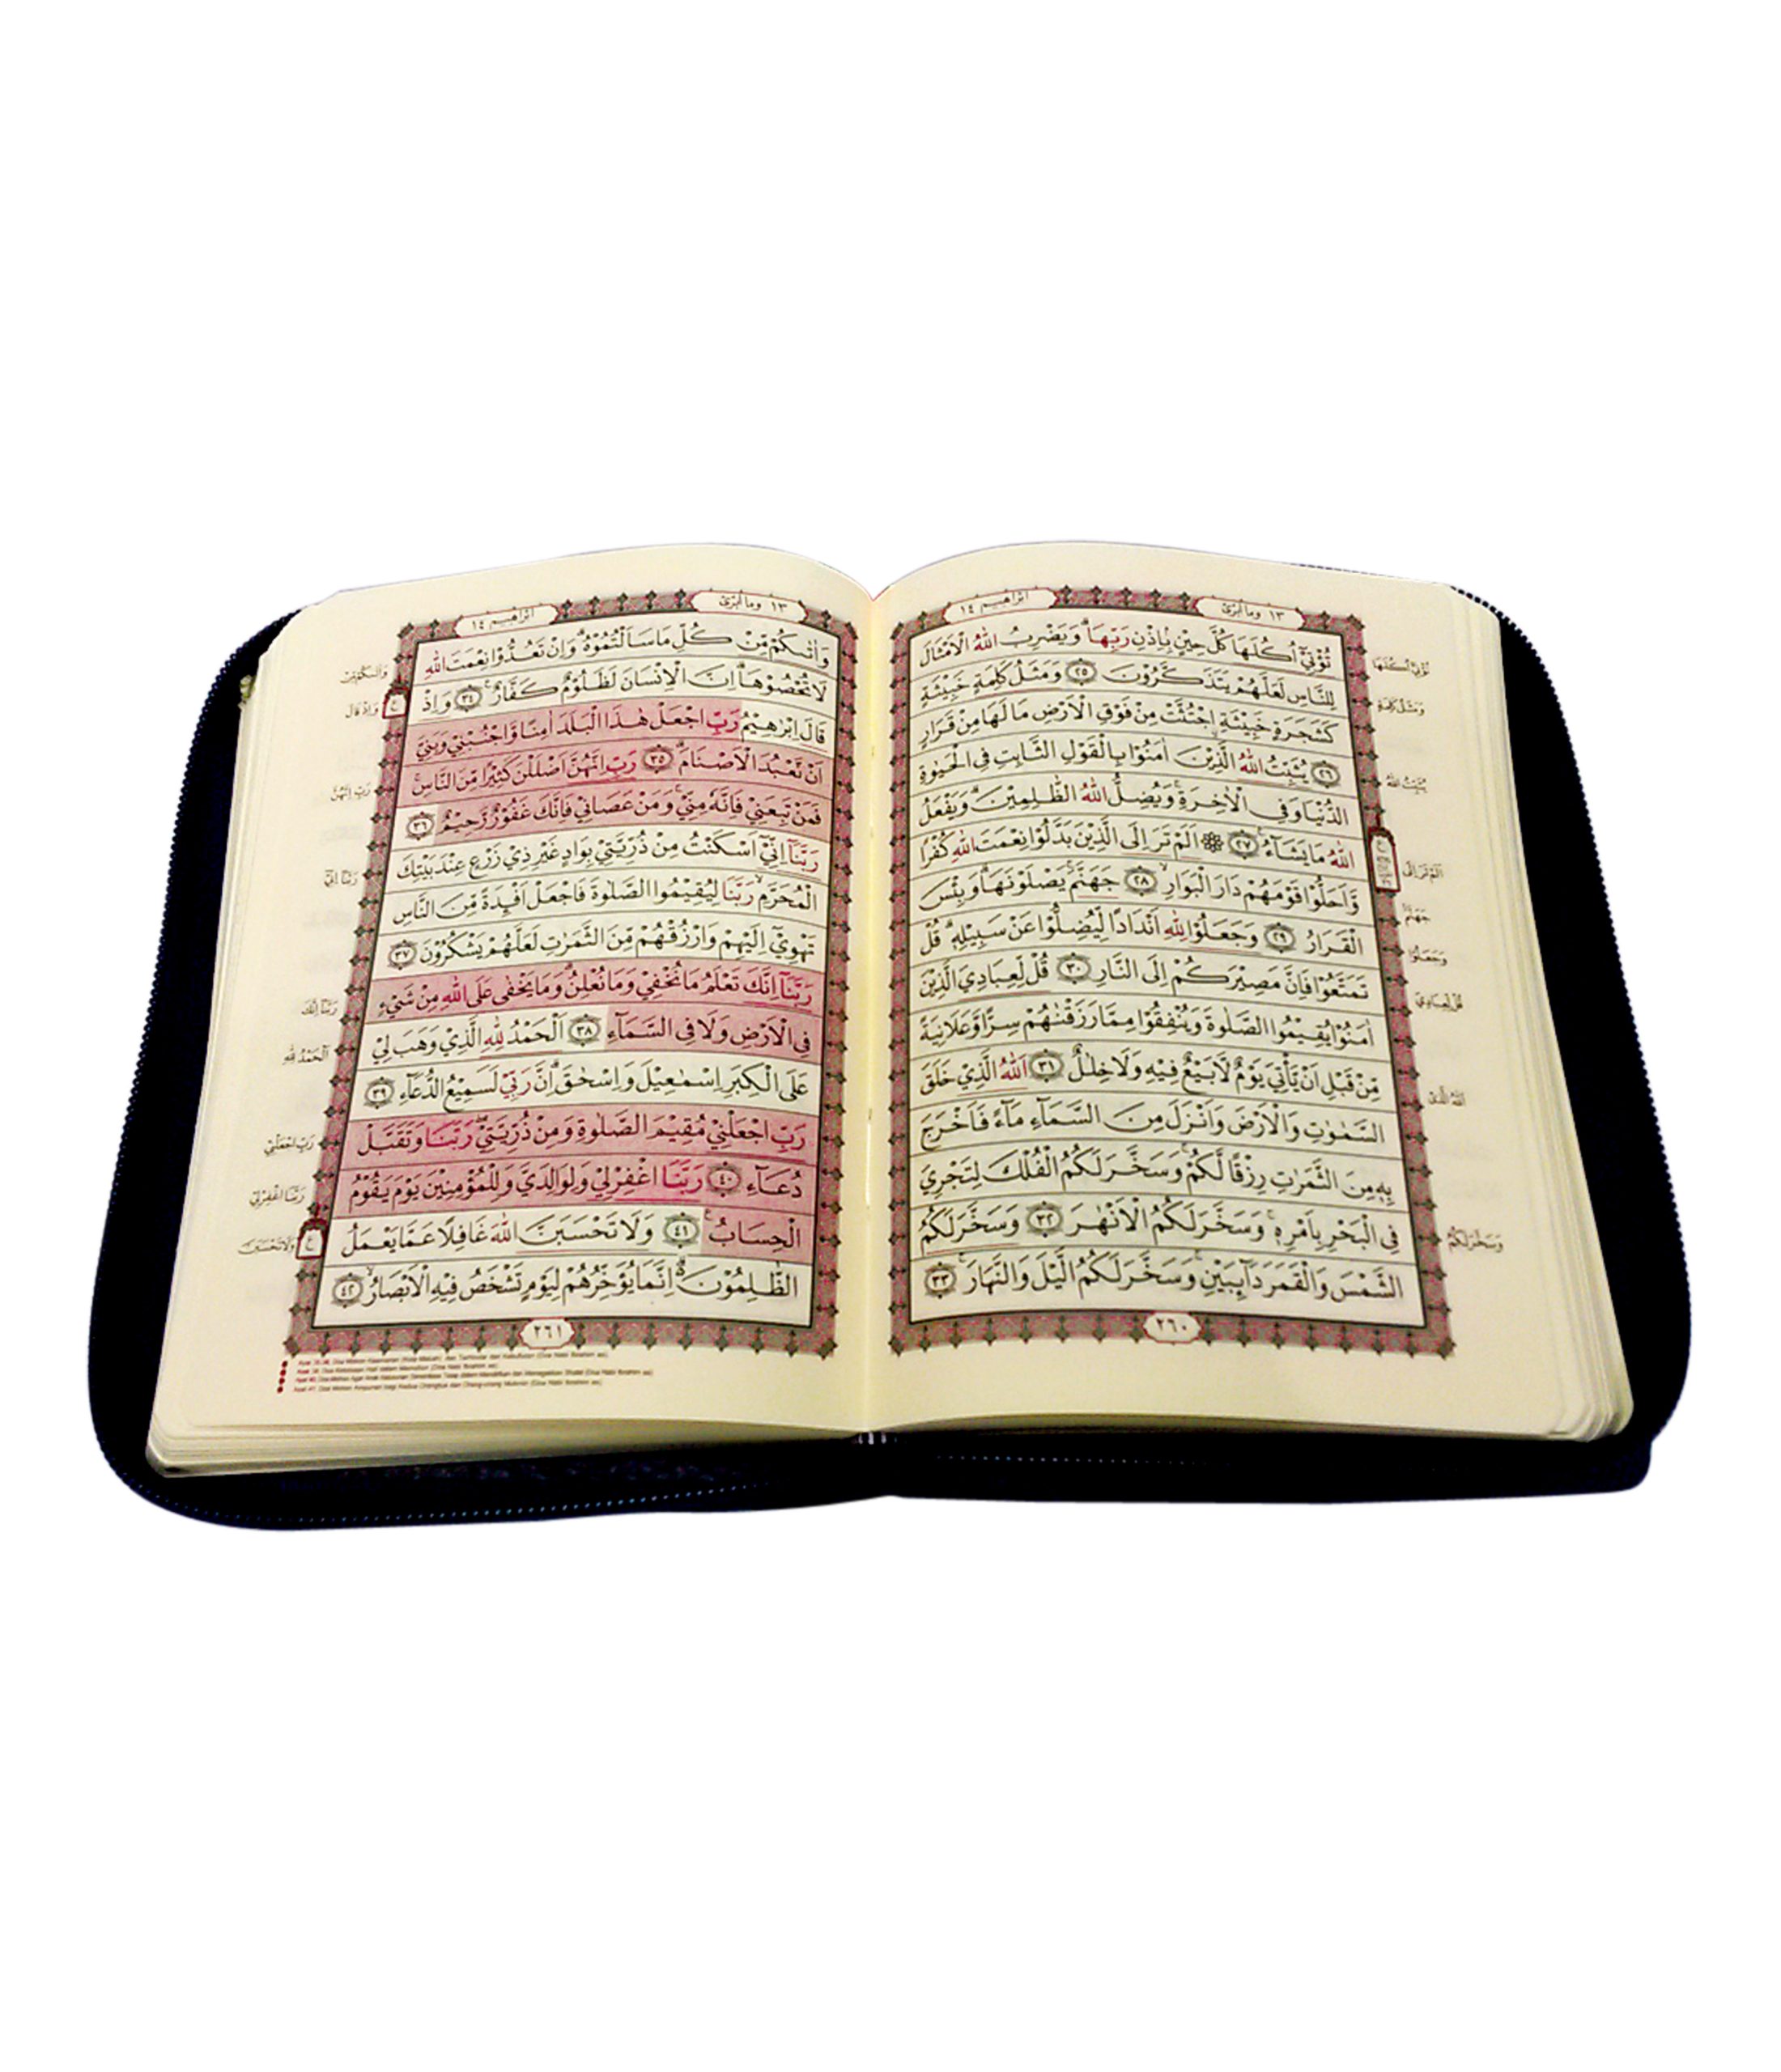 ١٣ وما أبرئ
ابراهيم ١٤
تُؤْتِيْٓ اُكُلَهَا كُلَّ حِيْنٍ بِاِذْنِ رَبِّهَاۗ وَيَضْرِبُ اللّٰهُ الْاَمْثَالَ
لِلنَّاسِ لَعَلَّهُمْ يَتَذَكَّرُوْنَ ٢٥ وَمَثَلُ كَلِمَةٍ خَبِيْثَةٍ
كَشَجَرَةٍ خَبِيْثَةِ ِۨاجْتُثَّتْ مِنْ فَوْقِ الْاَرْضِ مَا لَهَا مِنْ قَرَارٍ
٢٦ يُثَبِّتُ اللّٰهُ الَّذِيْنَ اٰمَنُوْا بِالْقَوْلِ الثَّابِتِ فِى الْحَيٰوةِ
الدُّنْيَا وَفِى الْاٰخِرَةِۚ وَيُضِلُّ اللّٰهُ الظّٰلِمِيْنَۗ وَيَفْعَلُ
اللّٰهُ مَا يَشَاۤءُ ࣖ ٢٧ ۞ اَلَمْ تَرَ اِلَى الَّذِيْنَ بَدَّلُوْا نِعْمَتَ اللّٰهِ كُفْرًا
وَّاَحَلُّوْا قَوْمَهُمْ دَارَ الْبَوَارِۙ ٢٨ جَهَنَّمَ ۚيَصْلَوْنَهَاۗ وَبِئْسَ
الْقَرَارُ ٢٩ وَجَعَلُوْا لِلّٰهِ اَنْدَادًا لِّيُضِلُّوْا عَنْ سَبِيْلِهٖۗ قُلْ
تَمَتَّعُوْا فَاِنَّ مَصِيْرَكُمْ اِلَى النَّارِ ٣٠ قُلْ لِّعِبَادِيَ الَّذِيْنَ
اٰمَنُوْا يُقِيْمُوا الصَّلٰوةَ وَيُنْفِقُوْا مِمَّا رَزَقْنٰهُمْ سِرًّا وَّعَلَانِيَةً
مِّنْ قَبْلِ اَنْ يَّأْتِيَ يَوْمٌ لَّا بَيْعٌ فِيْهِ وَلَا خِلٰلٌ ٣١ اَللّٰهُ الَّذِيْ خَلَقَ
السَّمٰوٰتِ وَالْاَرْضَ وَاَنْزَلَ مِنَ السَّمَاۤءِ مَاۤءً فَاَخْرَجَ
بِهٖ مِنَ الثَّمَرٰتِ رِزْقًا لَّكُمْ ۚوَسَخَّرَ لَكُمُ الْفُلْكَ لِتَجْرِيَ
فِى الْبَحْرِ بِاَمْرِهٖۚ وَسَخَّرَ لَكُمُ الْاَنْهٰرَ ٣٢ وَسَخَّرَ لَكُمُ
الشَّمْسَ وَالْقَمَرَ دَاۤىِٕبَيْنِۚ وَسَخَّرَ لَكُمُ الَّيْلَ وَالنَّهَارَۚ ٣٣
٢٦٠
تُؤْتِيْٓ اُكُلَهَا
وَمَثَلُ كَلِمَةٍ
يُثَبِّتُ اللّٰهُ
اَلَمْ تَرَ اِلَى
جَهَنَّمَ
وَجَعَلُوْا
قُلْ لِّعِبَادِيَ
اَللّٰهُ الَّذِيْ
وَسَخَّرَ لَكُمُ
١٣ وما أبرئ
ابراهيم ١٤
وَاٰتٰىكُمْ مِّنْ كُلِّ مَا سَاَلْتُمُوْهُۗ وَاِنْ تَعُدُّوْا نِعْمَتَ اللّٰهِ
لَا تُحْصُوْهَاۗ اِنَّ الْاِنْسَانَ لَظَلُوْمٌ كَفَّارٌ ࣖ ٣٤ وَاِذْ
قَالَ اِبْرٰهِيْمُ رَبِّ اجْعَلْ هٰذَا الْبَلَدَ اٰمِنًا وَّاجْنُبْنِيْ وَبَنِيَّ
اَنْ نَّعْبُدَ الْاَصْنَامَۗ ٣٥ رَبِّ اِنَّهُنَّ اَضْلَلْنَ كَثِيْرًا مِّنَ النَّاسِۚ
فَمَنْ تَبِعَنِيْ فَاِنَّهٗ مِنِّيْۚ وَمَنْ عَصَانِيْ فَاِنَّكَ غَفُوْرٌ رَّحِيْمٌ ٣٦
رَبَّنَآ اِنِّيْٓ اَسْكَنْتُ مِنْ ذُرِّيَّتِيْ بِوَادٍ غَيْرِ ذِيْ زَرْعٍ عِنْدَ بَيْتِكَ
الْمُحَرَّمِۙ رَبَّنَا لِيُقِيْمُوا الصَّلٰوةَ فَاجْعَلْ اَفْـِٕدَةً مِّنَ النَّاسِ
تَهْوِيْٓ اِلَيْهِمْ وَارْزُقْهُمْ مِّنَ الثَّمَرٰتِ لَعَلَّهُمْ يَشْكُرُوْنَ ٣٧
رَبَّنَآ اِنَّكَ تَعْلَمُ مَا نُخْفِيْ وَمَا نُعْلِنُۗ وَمَا يَخْفٰى عَلَى اللّٰهِ مِنْ شَيْءٍ
فِى الْاَرْضِ وَلَا فِى السَّمَاۤءِ ٣٨ اَلْحَمْدُ لِلّٰهِ الَّذِيْ وَهَبَ لِيْ
عَلَى الْكِبَرِ اِسْمٰعِيْلَ وَاِسْحٰقَۗ اِنَّ رَبِّيْ لَسَمِيْعُ الدُّعَاۤءِ ٣٩
رَبِّ اجْعَلْنِيْ مُقِيْمَ الصَّلٰوةِ وَمِنْ ذُرِّيَّتِيْۖ رَبَّنَا وَتَقَبَّلْ
دُعَاۤءِ ٤٠ رَبَّنَا اغْفِرْ لِيْ وَلِوَالِدَيَّ وَلِلْمُؤْمِنِيْنَ يَوْمَ يَقُوْمُ
الْحِسَابُ ࣖ ٤١ وَلَا تَحْسَبَنَّ اللّٰهَ غَافِلًا عَمَّا يَعْمَلُ
الظّٰلِمُوْنَ ۗاِنَّمَا يُؤَخِّرُهُمْ لِيَوْمٍ تَشْخَصُ فِيْهِ الْاَبْصَارُۙ ٤٢
٢٦١
وَاٰتٰىكُمْ مِّنْ
وَاِذْ قَالَ
رَبِّ اِنَّهُنَّ
رَبَّنَآ اِنِّيْ
رَبَّنَآ اِنَّكَ
اَلْحَمْدُ لِلّٰهِ
رَبِّ اجْعَلْنِيْ
رَبَّنَا اغْفِرْ لِيْ
وَلَا تَحْسَبَنَّ